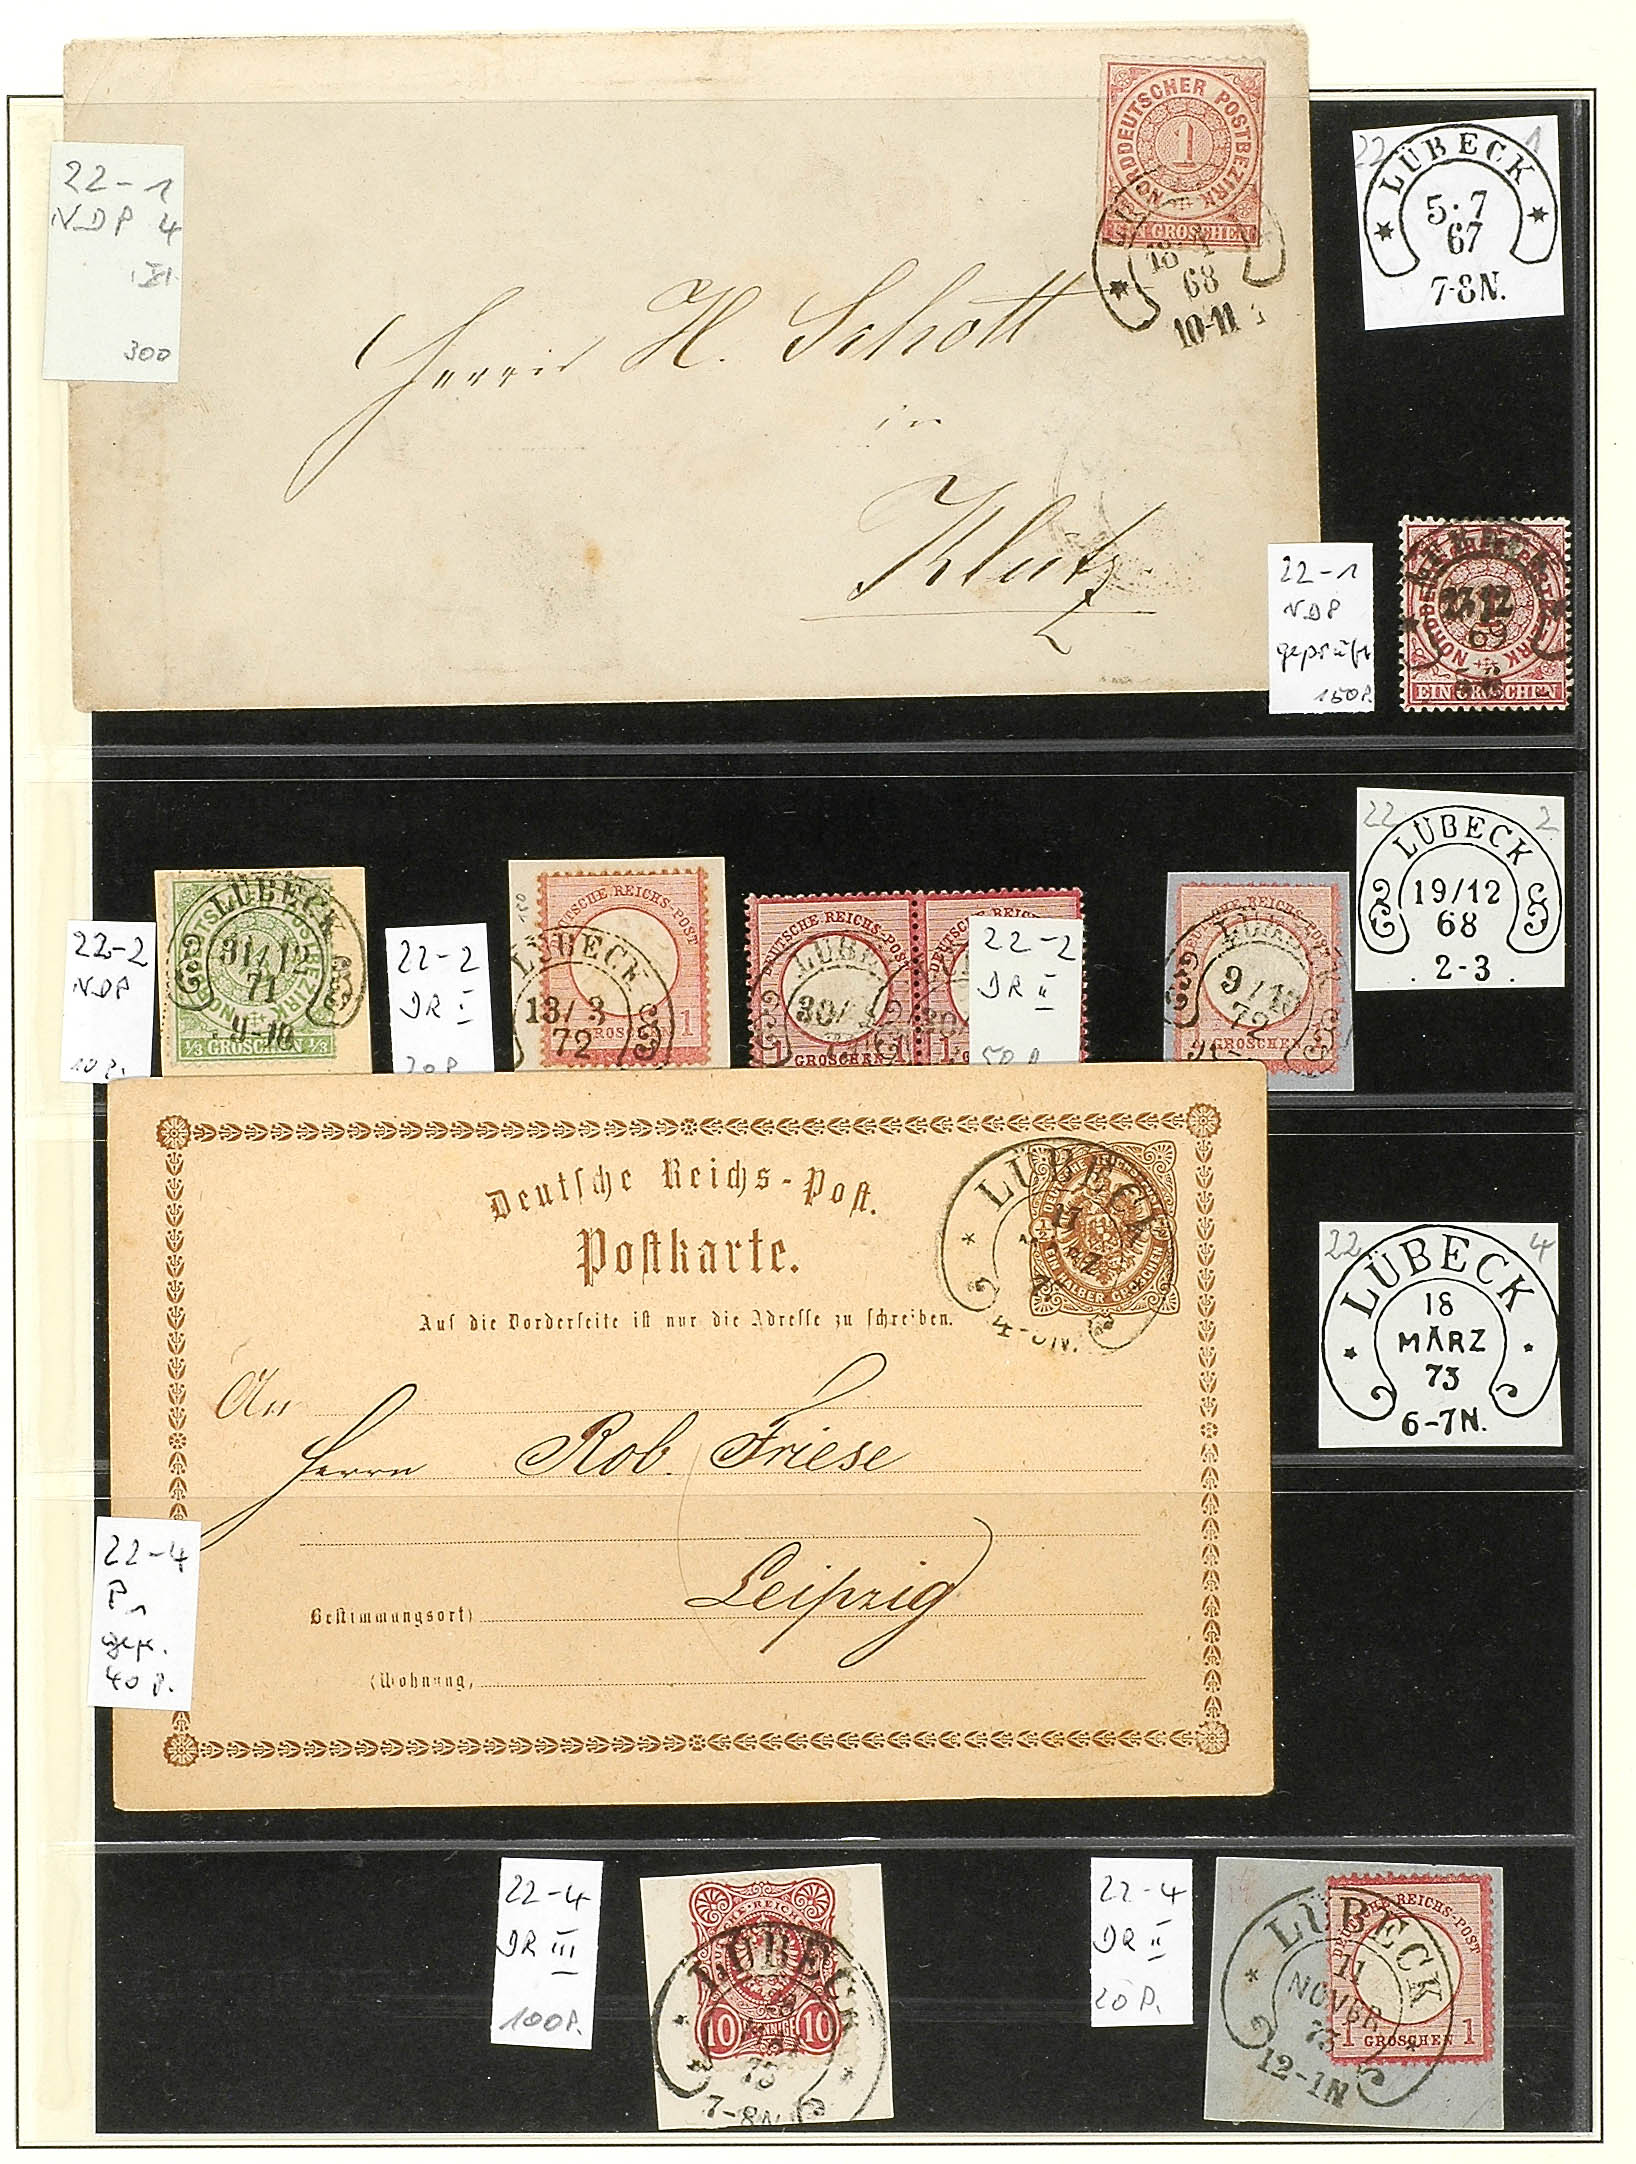 22-1
NDP 4
300
NORDDEUTSCHER POSTBEZIRK
1
EIN GROSCHEN
68
10-11
Herrn H. Schott
in
Klütz
22 1
LÜBECK
5.7
67
7-8N.
22-1
NDP
geprüft
150P.
NORDDEUTSCHER POSTBEZIRK
EIN GROSCHEN
69
22 2
LÜBECK
19/12
68
2-3
22-2
NDP
10P.
LÜBECK
31/12
71
9-10
1/3 GROSCHEN 1/3
22-2
DR I
20P
150
DEUTSCHE REICHS-POST
LÜBECK
13/3
72
GROSCHEN 1
DEUTSCHE REICHS-POST
LÜBECK
30/
1 GROSCHEN 1
22-2
DR II
50P.
LÜBECK
9/10
72
GROSCHEN
Deutsche Reichs-Post.
Postkarte.
Auf die Vorderseite ist nur die Adresse zu schreiben.
LÜBECK
17
EIN HALBER GROSCHEN
An
Herrn Rob. Friese
Leipzig
Bestimmungsort)
(Wohnung)
22-4
P1
40P.
22 4
LÜBECK
18
MÄRZ
73
6-7N.
22-4
DR III
100P.
LÜBECK
10 PFENNIGE 10
75
7-8N.
22-4
DR II
20P.
LÜBECK
11
NOVBR
73
12-1N
DEUTSCHE REICHS-POST
1 GROSCHEN 1